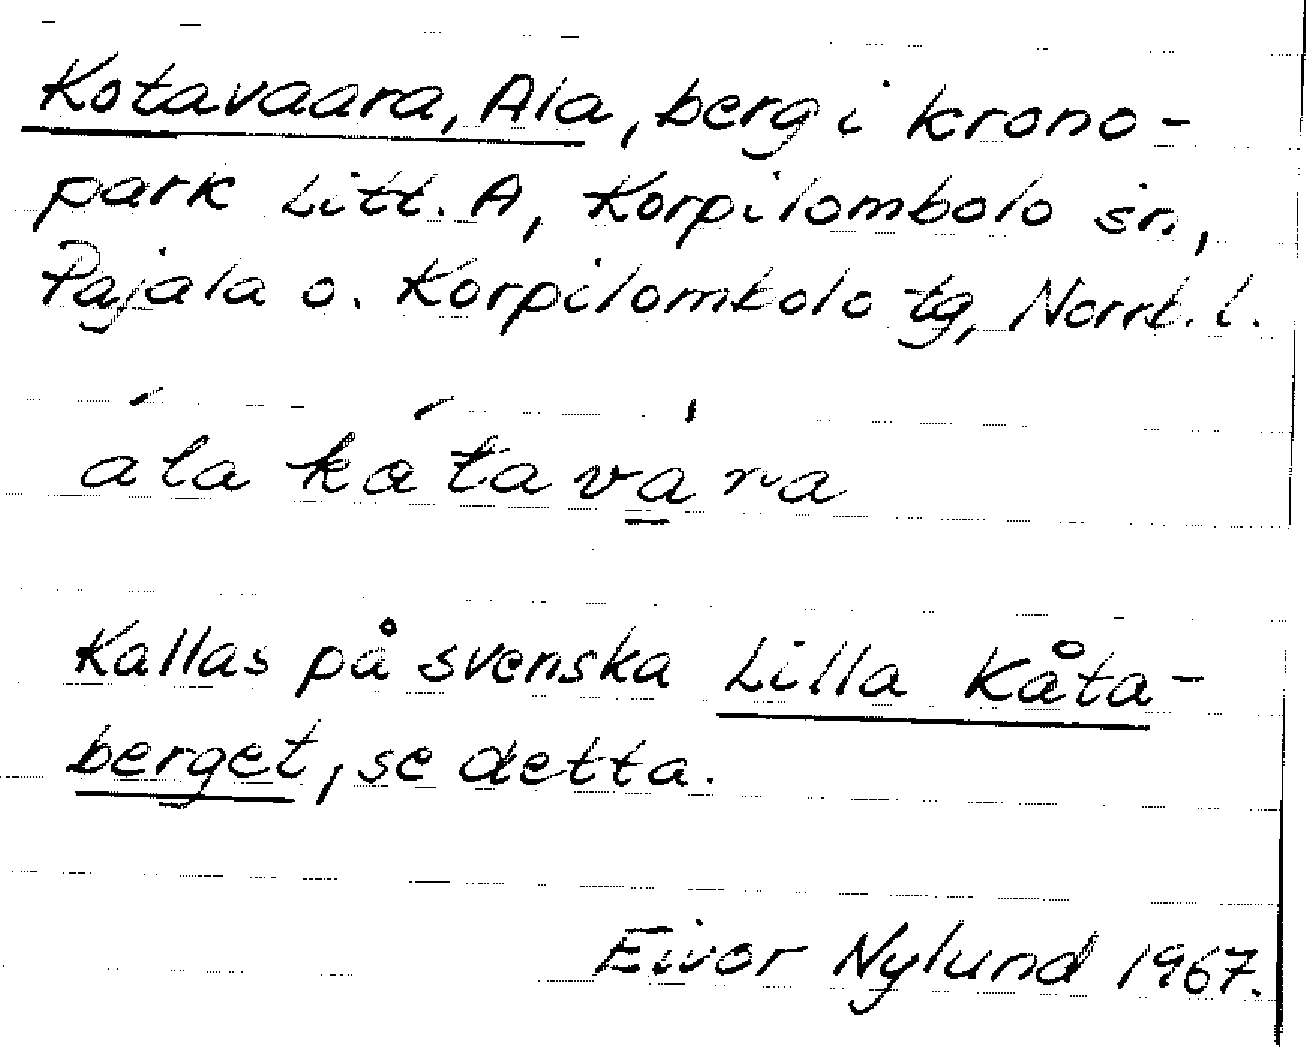 Kotavaara, Ala, berg i krono-
park Litt. A, Korpilombolo sn.,
Pajala o. Korpilombolo tg, Norrb. l.
ála kátava̲̍ra
Kallas på svenska Lilla Kåta-
berget, se detta.
Eivor Nylund 1967.